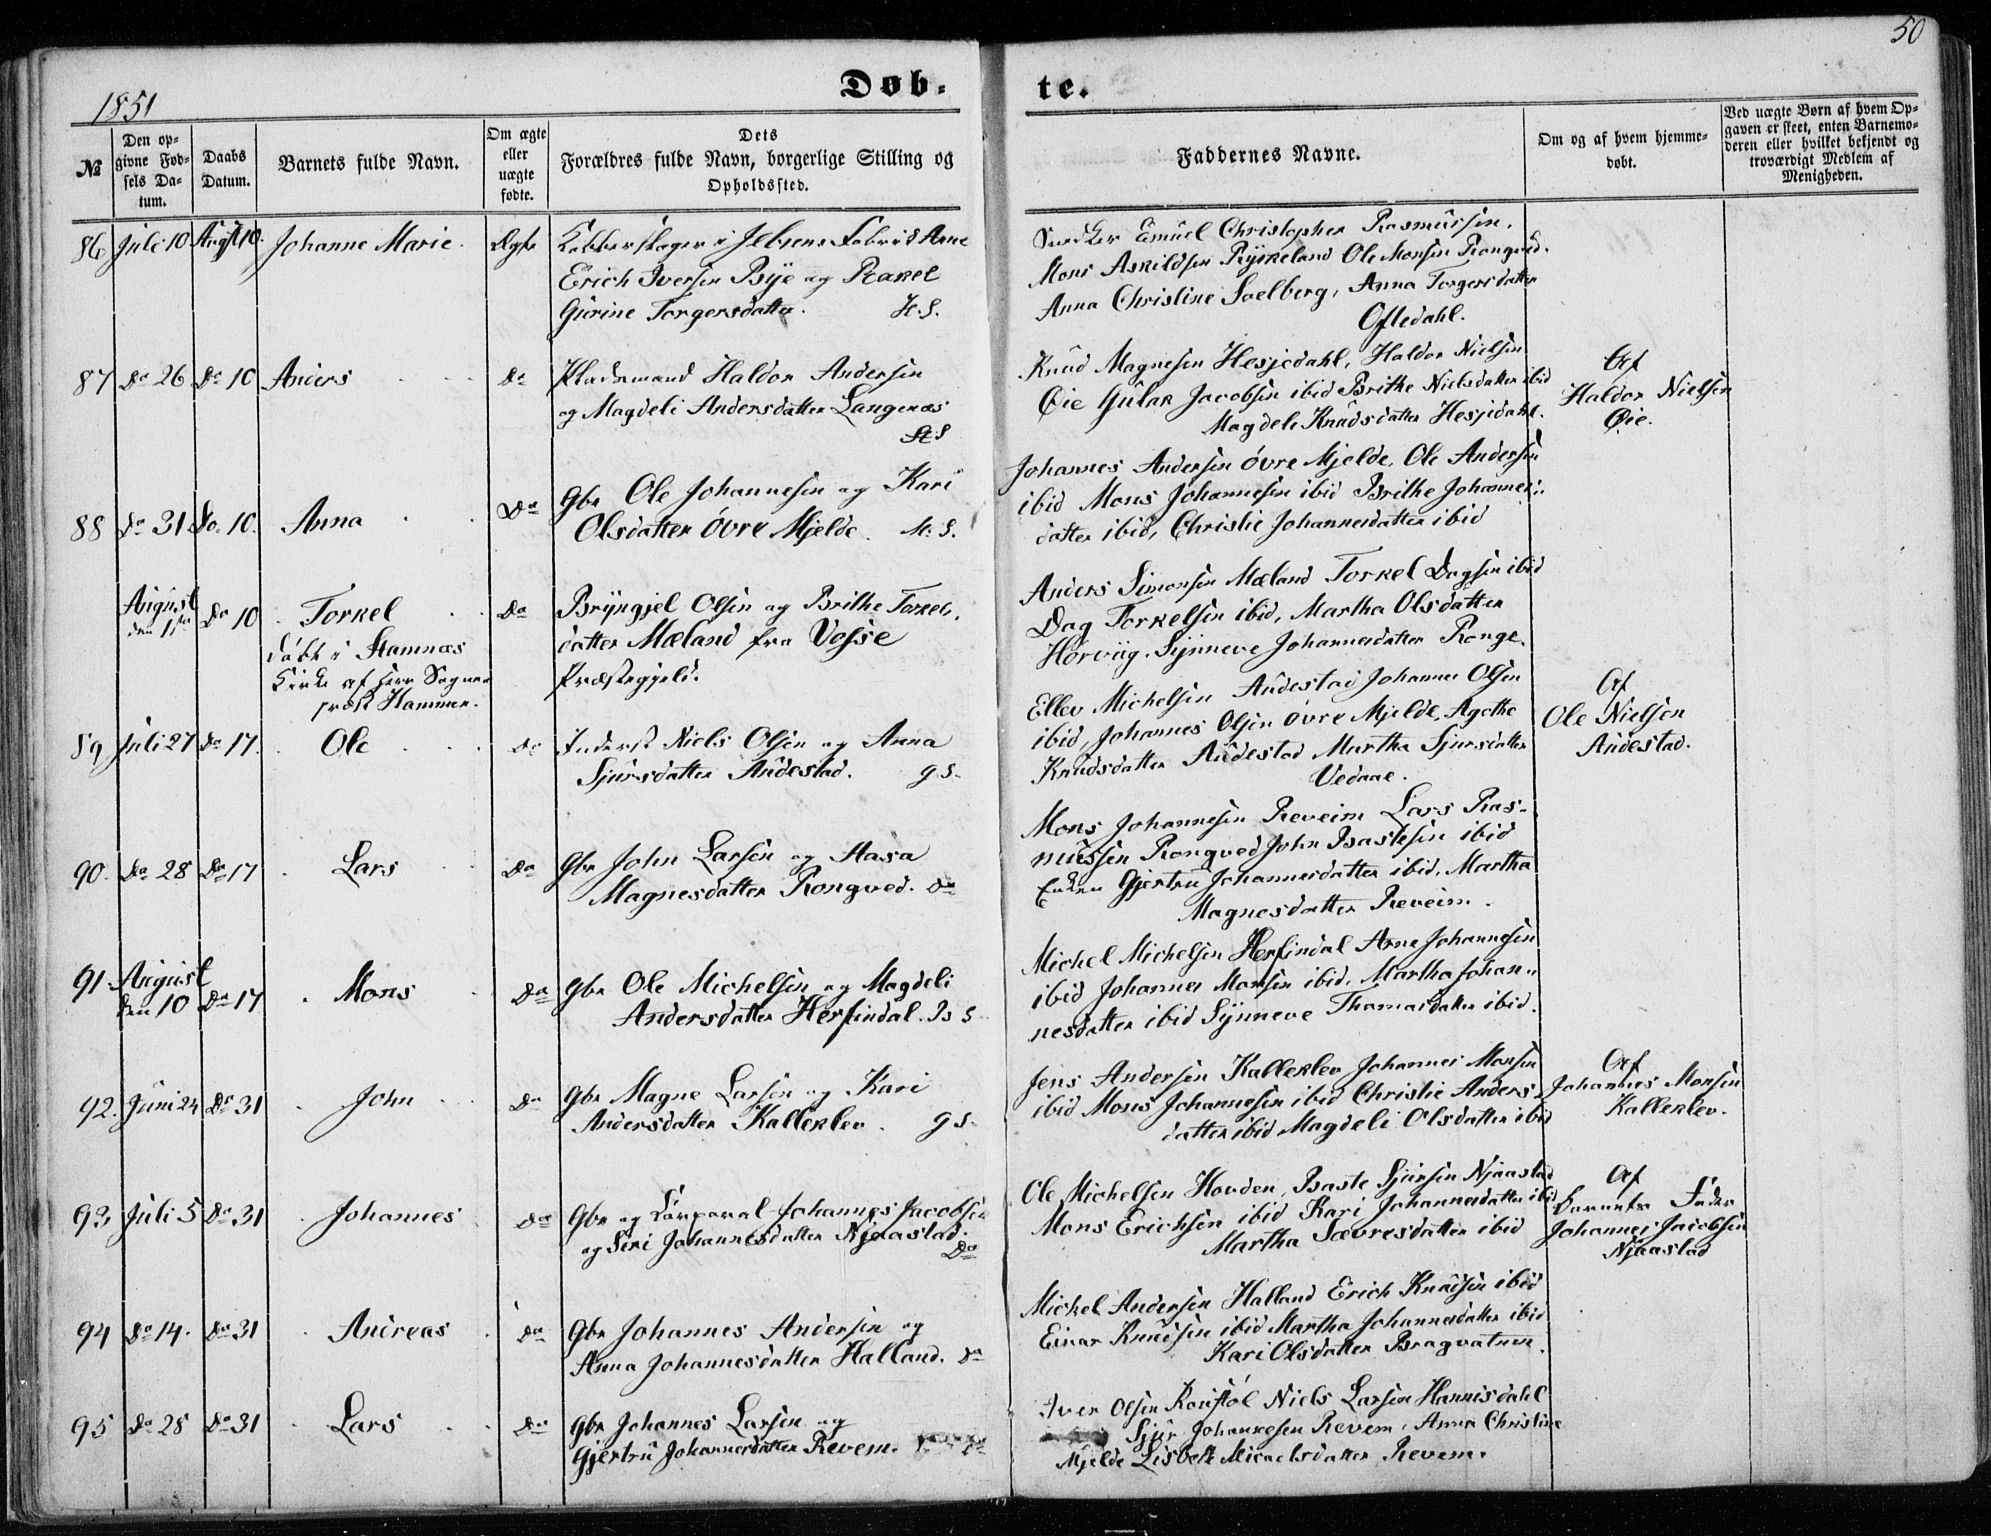 50
1851
Døb-
te.
№
Den op-
givne Fød-
sels Da-
tum.
Daabs
Datum.
Barnets fulde Navn.
Om ægte
eller
uægte
fødte.
Dets
Forældres fulde Navn, borgerlige Stilling og
Opholdssted.
Faddernes Navne.
Om og af hvem hjemme-
døbt.
Ved uægte Børn af hvem Op-
gaven er skeet, enten Barnemo-
deren eller hvilket bekjendt og
troværdigt Medlem af
Menigheden.
86 Juli 10 Augst 10. Johanne Marie. Ægte
Kobberslager i Jebsens Fabrik Arne
Erich Iversen Bye og Rakel
Gurine Torgersdatter. H. S.
Emuel Christopher Rasmussen,
Mons Askildsen Ryskeland Ole Monsen Rongved.
Anna Christine Soelberg, Anna Torgersdatter
Oftedahl.
87 Do 26 Do 10 Anders Do
Pladsmand Haldor Andersen
og Magdeli Andersdatter Langenæs
St S
Knud Magnesen Hesjedahl, Haldor Nielsen
Øie Gulak Jacobsen ibid Brithe Nielsdatter ibid
Magdeli Knudsdatter Hesjedahl.
Af
Haldor Nielsen
Øie.
88 Do 31 Do. 10. Anna Do
Gbr Ole Johannesen og Kari
Olsdatter øvre Mjelde. M. S.
Johannes Andersen øvre Mjelde, Ole Andersen
ibid Mons Johannesen ibid Brithe Johannes-
datter ibid, Christie Johannesdatter ibid
August
den 1ste Do 10 Torkel Do
døbt i Stamnæs
Kirke af Herr Sogne-
præst Hammer.
Bryngjel Olsen og Brithe Torkels-
datter Mæland fra Vosse
Præstegjeld.
Anders Simonsen Mæland Torkel Dagsen ibid
Dag Torkelsen ibid, Martha Olsdatter
Horviig. Synneve Johannesdatter Ronge.
89 Juli 27 Do 17. Ole Do
Inderst Niels Olsen og Anna
Sjursdatter Audestad. g S.
Ellev Michelsen Audestad Johannes Olsen
ibid, Johannes Olsen øvre Mjelde, Agethe
Knudsdatter Audestad Martha Sjursdatter
Vedaae.
Af
Ole Nielsen
Audestad.
90. Do 28 Do 17 Lars Do
Gbr John Larsen og Aasa
Magnesdatter Rongved. Do
Mons Johannesen Reveim Lars Ras-
mussen Rongved John Bastesen ibid
Enken Gjertru Johannesdatter ibid, Martha
Magnesdatter Reveim.
91. August
den 10 Do 17 Mons Do
Gbr Ole Michelsen og Magdeli
Andersdatter Herfindal. Bs S
Michel Michelsen Herfindal Arne Johannesen
ibid Johannes Monsen ibid. Martha Johan-
nesdatter ibid Synneve Thomasdatter ibid.
92. Juni 24 Do 31 John Do
Gbr Magne Larsen og Kari
Andersdatter Kalleklev. g S.
Jens Andersen Kalleklev Johannes Monsen
ibid Mons Johannesen ibid Christie Anders-
datter ibid Magdeli Olsdatter ibid
Af
Johannes Monsen
Kalleklev.
93 Juli 5 Do 31 Johannes Do
Gbr og Corporal Johannes Jacobsen
og Siri Johannesdatter Njaastad.
Do
Ole Michelsen Houden, Baste Sjursen Njaastad
Mons Erichsen ibid Kari Johannesdatter ibid
Martha Sævresdatter ibid
Af
Barnets Fader
Johannes Jacobsen
Njaastad
94 Do 14. Do 31 Andreas Do
Gbr Johannes Andersen og
Anna Johannesdatter Halland. Do
Mickel Andersen Halland Erich Knudsen ibid
Einar Knudsen ibid Martha Johannesdatter ibid
Kari Olsdatter Bragvatnen.
95 Do 28 Do 31 Lars Do
Gbr Johannes Larsen og
Gjertru Johannesdatter Revem. Do
Iver Olsen Niels Larsen Hannisdahl
Sjur Johannesen Revem, Anna Christine
Mjelde Lisbeth Micaelsdatter Revem.